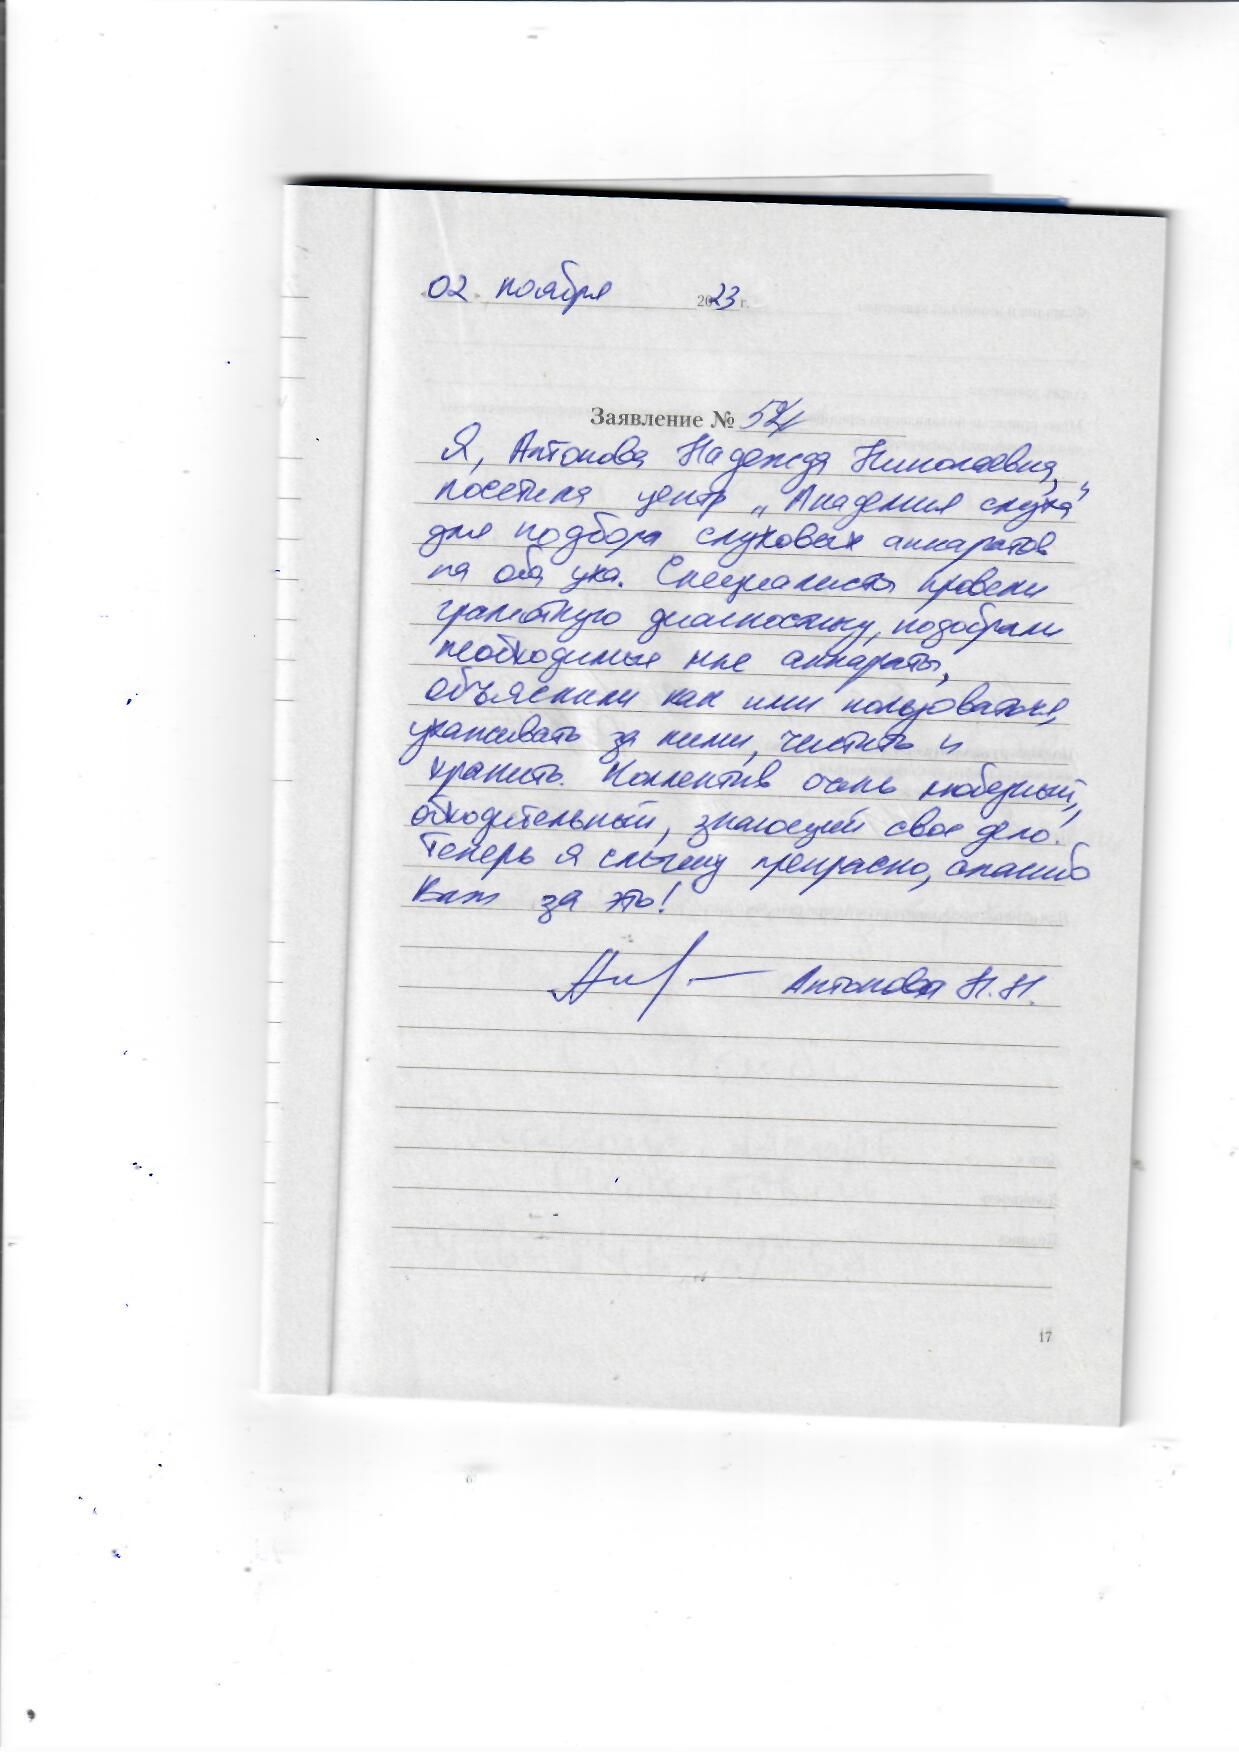 02 ноября 2023 г.
Заявление №
Я, Антонова Надежда Николаевна,
посетила центр „Академия слуха"
для подбора слуховых аппаратов
на оба уха. Специалисты провели
грамотную диагностику, подобрали
необходимые мне аппараты,
объяснили как ими пользоваться,
ухаживать за ними, чистить и
хранить. Коллектив очень любезный,
обходительный, знающий свое дело.
Теперь я слышу прекрасно, спасибо
Вам за это!
Антонова Н.Н.
17